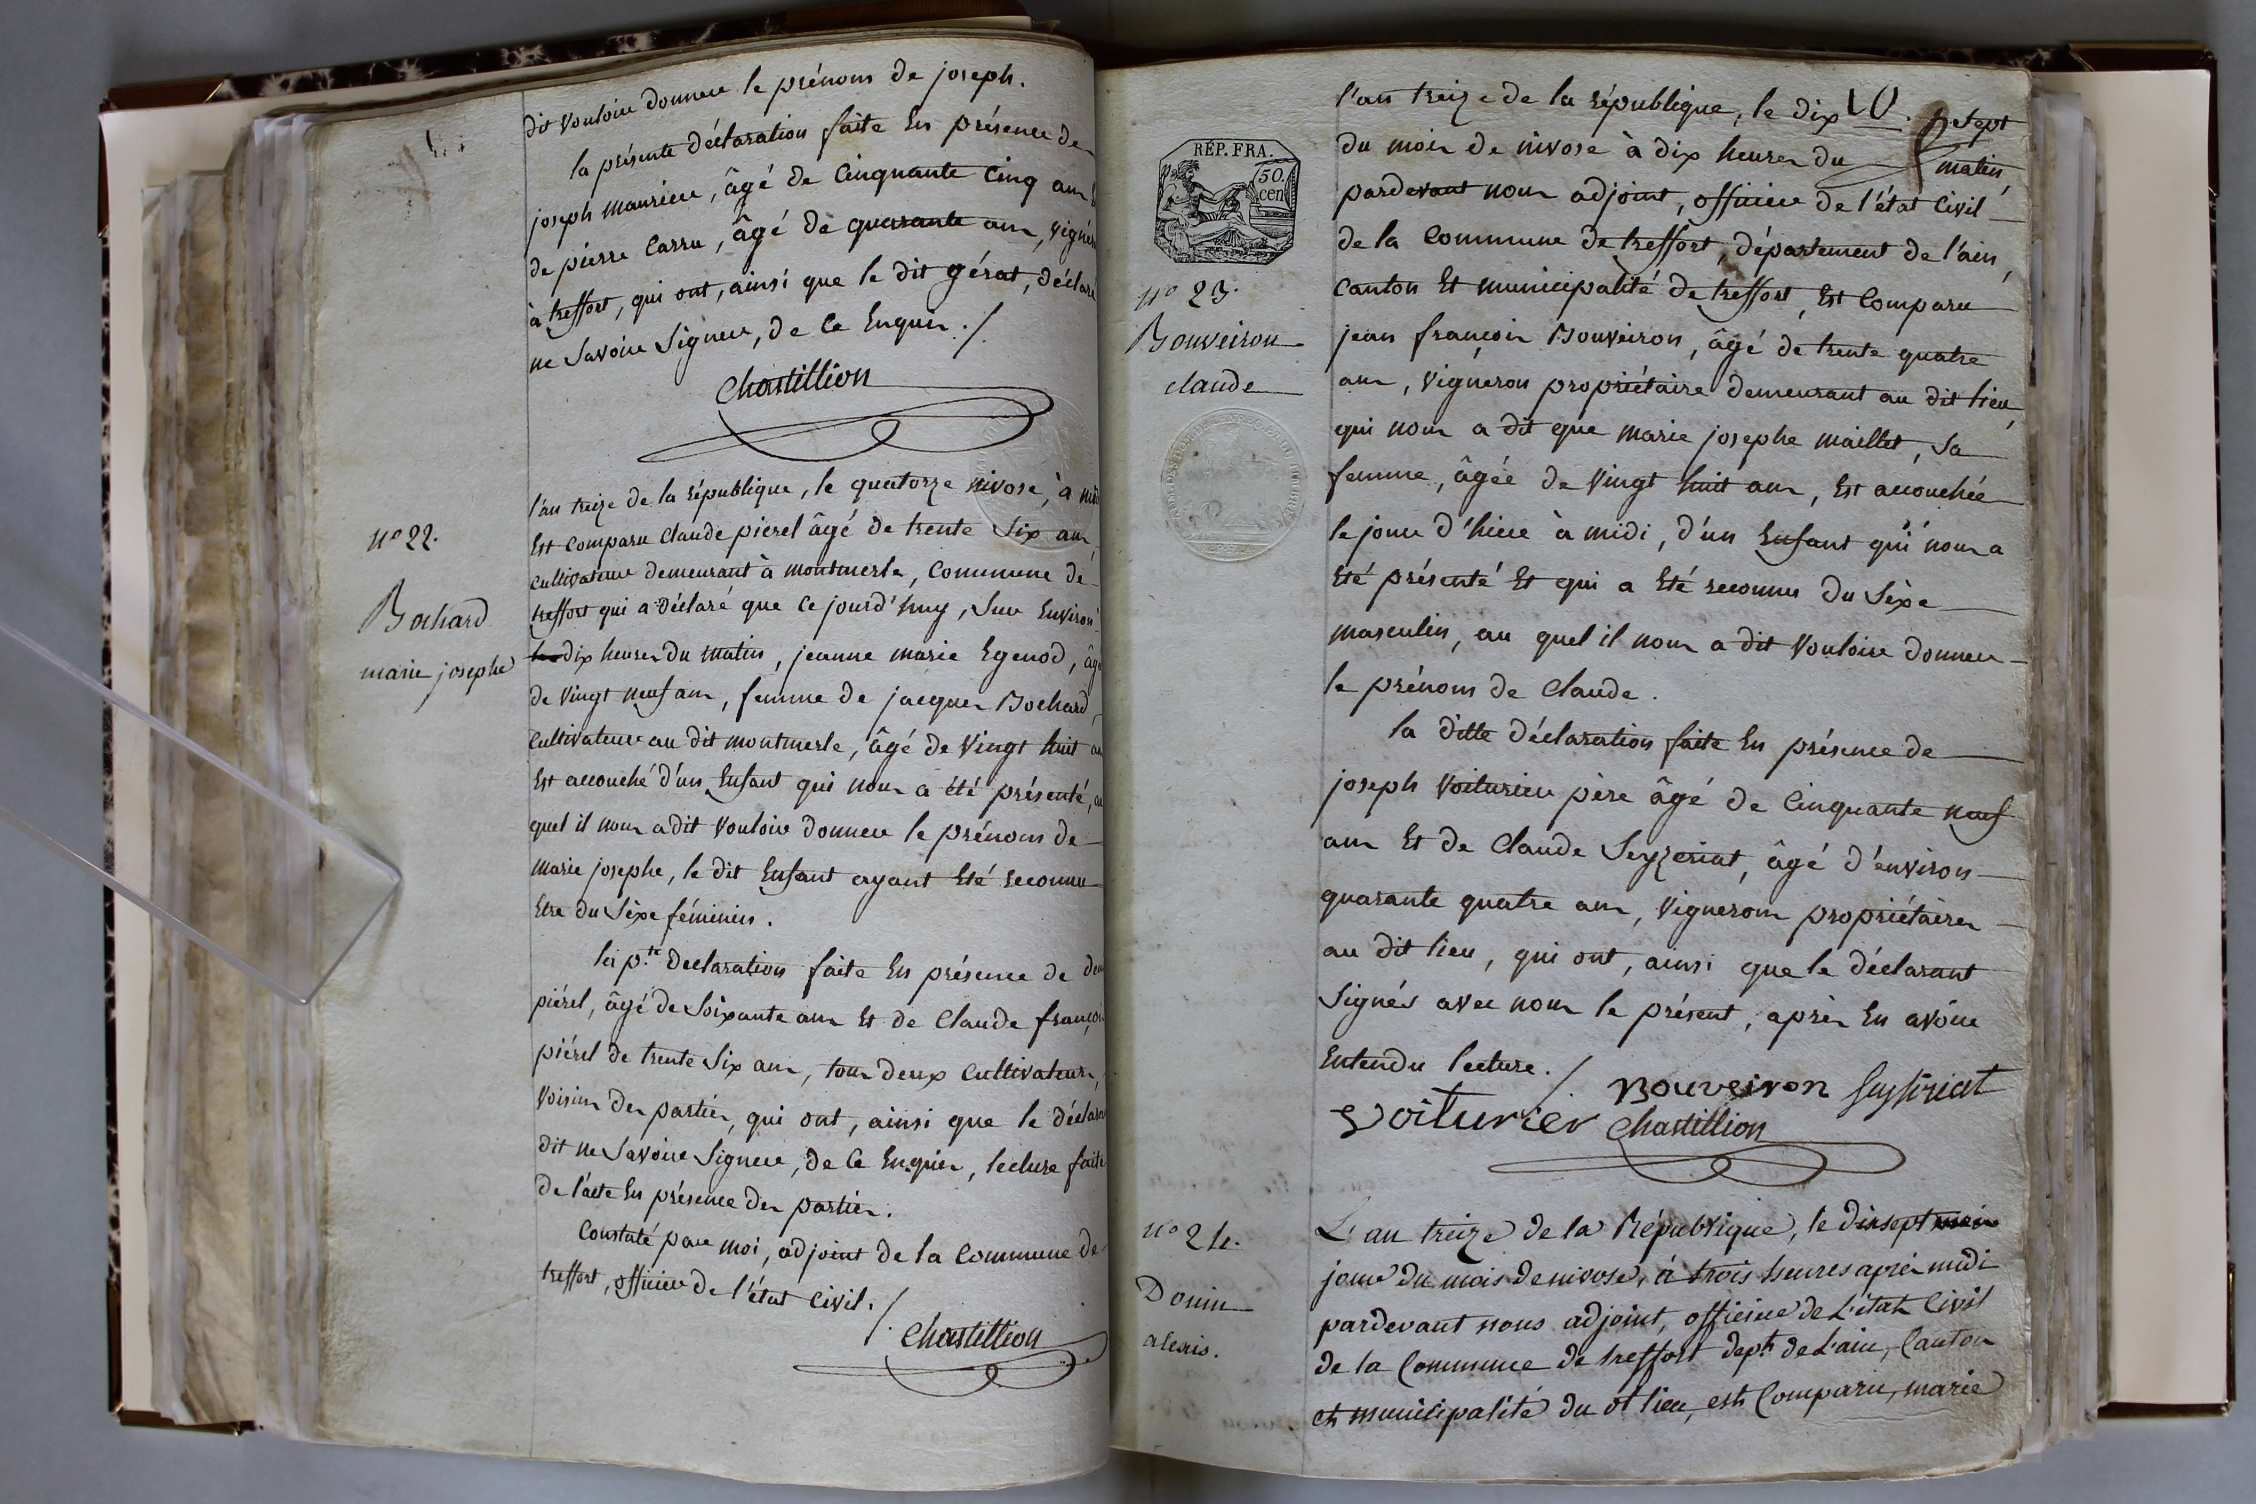 dit vouloir donner le prénom de joseph.
la présente déclaration faite En présence de
joseph maurier, âgé de Cinquante Cinq ans &
de pierre Carru, âgé de quarante ans, vigner
à treffort, qui ont, ainsi que le dit gérat, déclaré
ne Savoir Signer, de Ce Enquis ./.
Chastillion
l'an treize de la république, le quatorze nivose, à midi
Est Comparu Claude piérel âgé de trente Six ans,
Cultivateur demeurant à montmerle, Commune de
treffort qui a déclaré que Ce jourd'huy, Sur Environ
dix heures du matin, jeanne marie Egenod, âgée
de vingt neuf ans, femme de jacques Bochard,
Cultivateur au dit montmerle, âgé de vingt huit an
Est accouché d'un Enfant qui nous a été présenté, au
quel il nous a dit vouloir donner le prénom de
marie josephe, le dit Enfant ayant Eté reconnu
Etre du Sèxe féminin.
la p.te déclaration faite En présence de
piérel, âgé de Soixante ans Et de Claude françois
piérel de trente Six ans, tous deux Cultivateurs,
voisins des parties, qui ont, ainsi que le déclara
dit ne Savoir Signer, de Ce Enquis, lecture faite
de l'acte En présence des parties.
Constaté par moi, adjoint de la Commune de
treffort, officier de l'état Civil. ./.
Chastillion
nº 22.
Bochard
marie josephe
10.
l'an treize de la république, le dix sept
du mois de nivose à dix heures du matin,
pardevant nous adjoint, officier de l'état Civil
de la Commune de treffort, département de l'ain,
Canton Et municipalité de treffort, Est Comparu
jean françois Bouveiron, âgé de trente quatre
ans, vigneron propriétaire demeurant au dit lieu,
qui nous a dit que marie josephe maillet, Sa
femme, âgée de vingt huit ans, Est accouchée
le jour d'hier à midi, d'un Enfant qui nous a
Eté présenté Et qui a Eté reconnu du Sèxe
masculin, au quel il nous a dit vouloir donner
le prénom de Claude.
la ditte déclaration faite En présence de
joseph voiturier père âgé de Cinquante neuf
ans Et de Claude Seyzeriat, âgé d'environ
quarante quatre ans, vignerons propriétaires
au dit lieu, qui ont, ainsi que le déclarant
Signés avec nous le présent, après En avoir
Entendu lecture. ./.
Bouveiron Seyseriat
voiturier Chastillion
RÉP. FRA.
50.
cen
nº 23.
Bouveiron
claude
L'an treize de la République, le dixsept
jour du mois de nivose, à trois heures après midi
pardevant nous adjoint, officier de L'état Civil
de la Commune de treffort dept. de L'ain, Canton
et municipalité du dt lieu, est Comparu, marie
nº 24.
Donin
alexis.